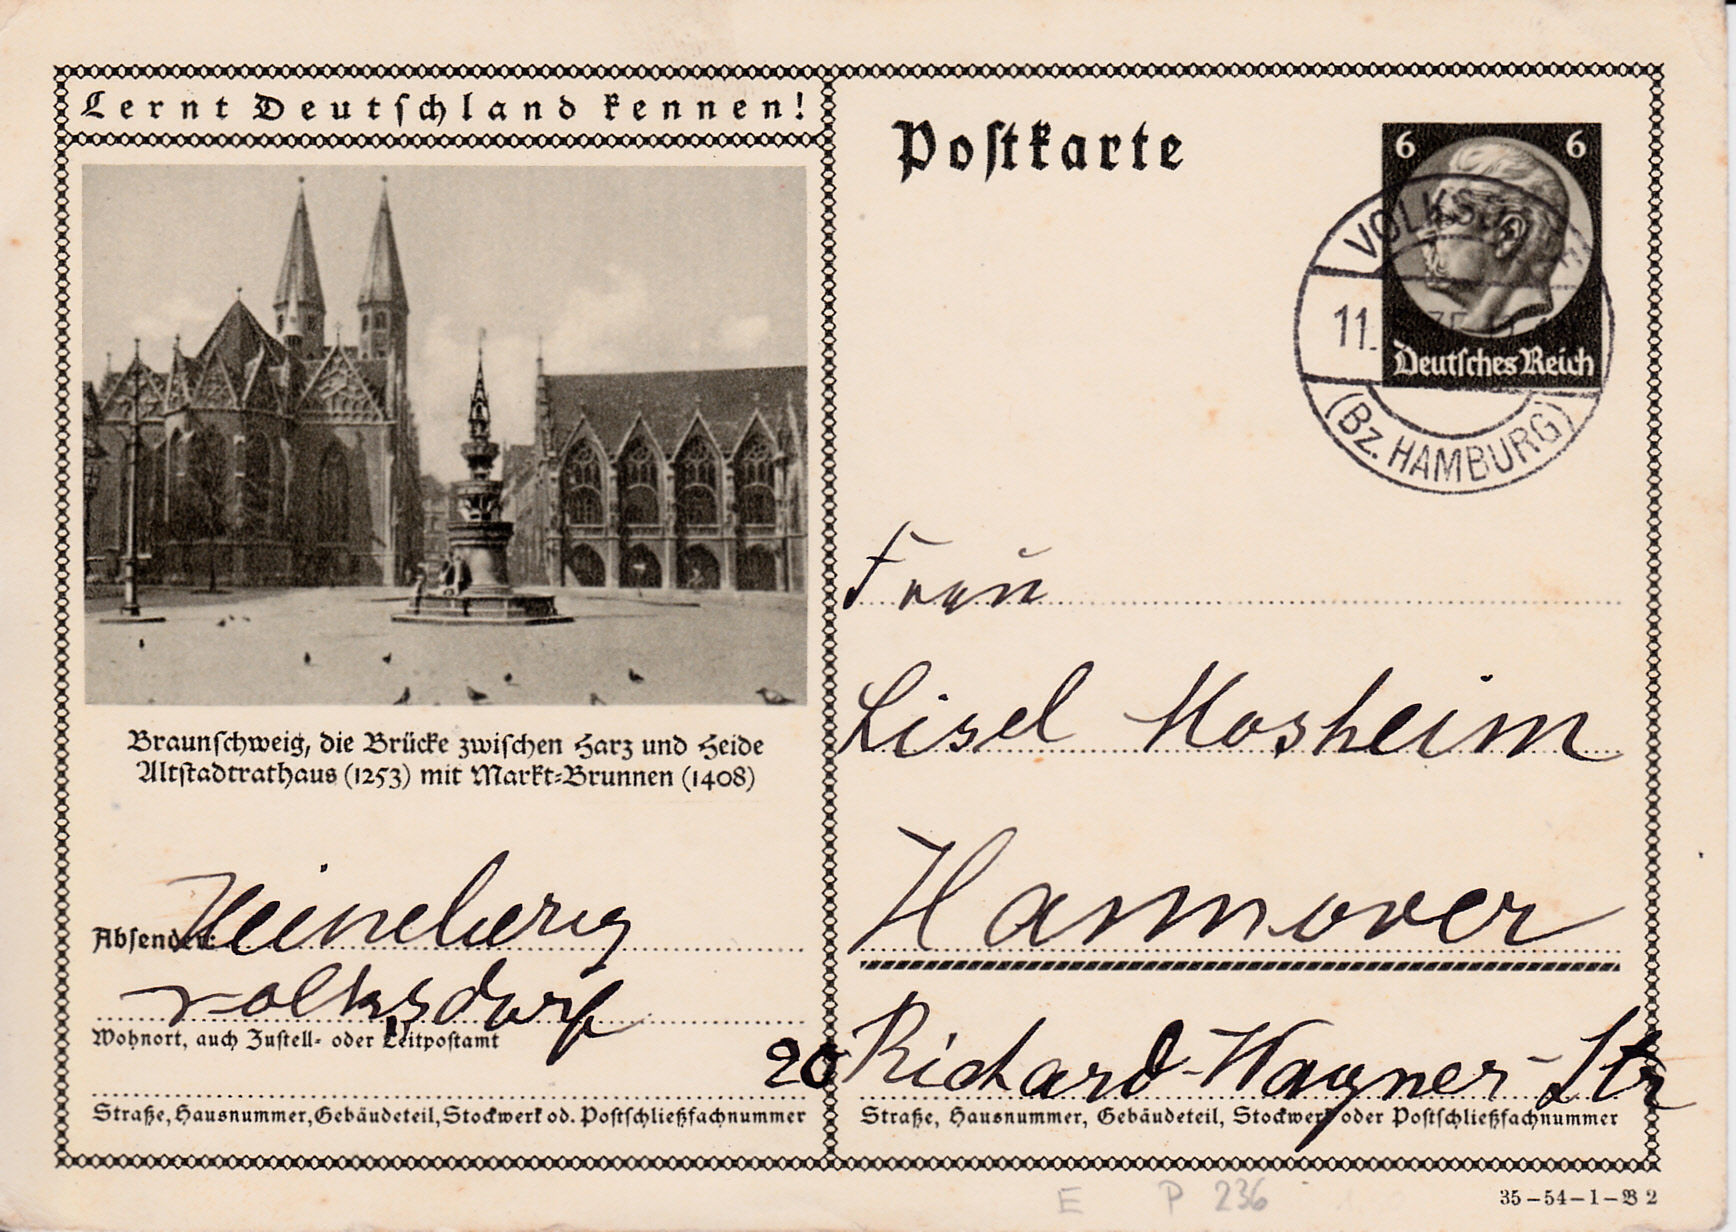 Lernt Deutschland kennen!
Postkarte
6 6
Deutsches Reich
VOLKS
11.
(Bz. HAMBURG)
Braunschweig, die Brücke zwischen Harz und Heide
Altstadtrathaus (1253) mit Markt-Brunnen (1408)
Absender: Heineberg
Volksdorf
Wohnort, auch Zustell- oder Leitpostamt
Straße, Hausnummer, Gebäudeteil, Stockwerk od. Postschließfachnummer
Frau
Lisel Mosheim
Hannover
20 Richard-Wagner-Str
Straße, Hausnummer, Gebäudeteil, Stockwerk oder Postschließfachnummer
E P 236
35-54-1-B 2